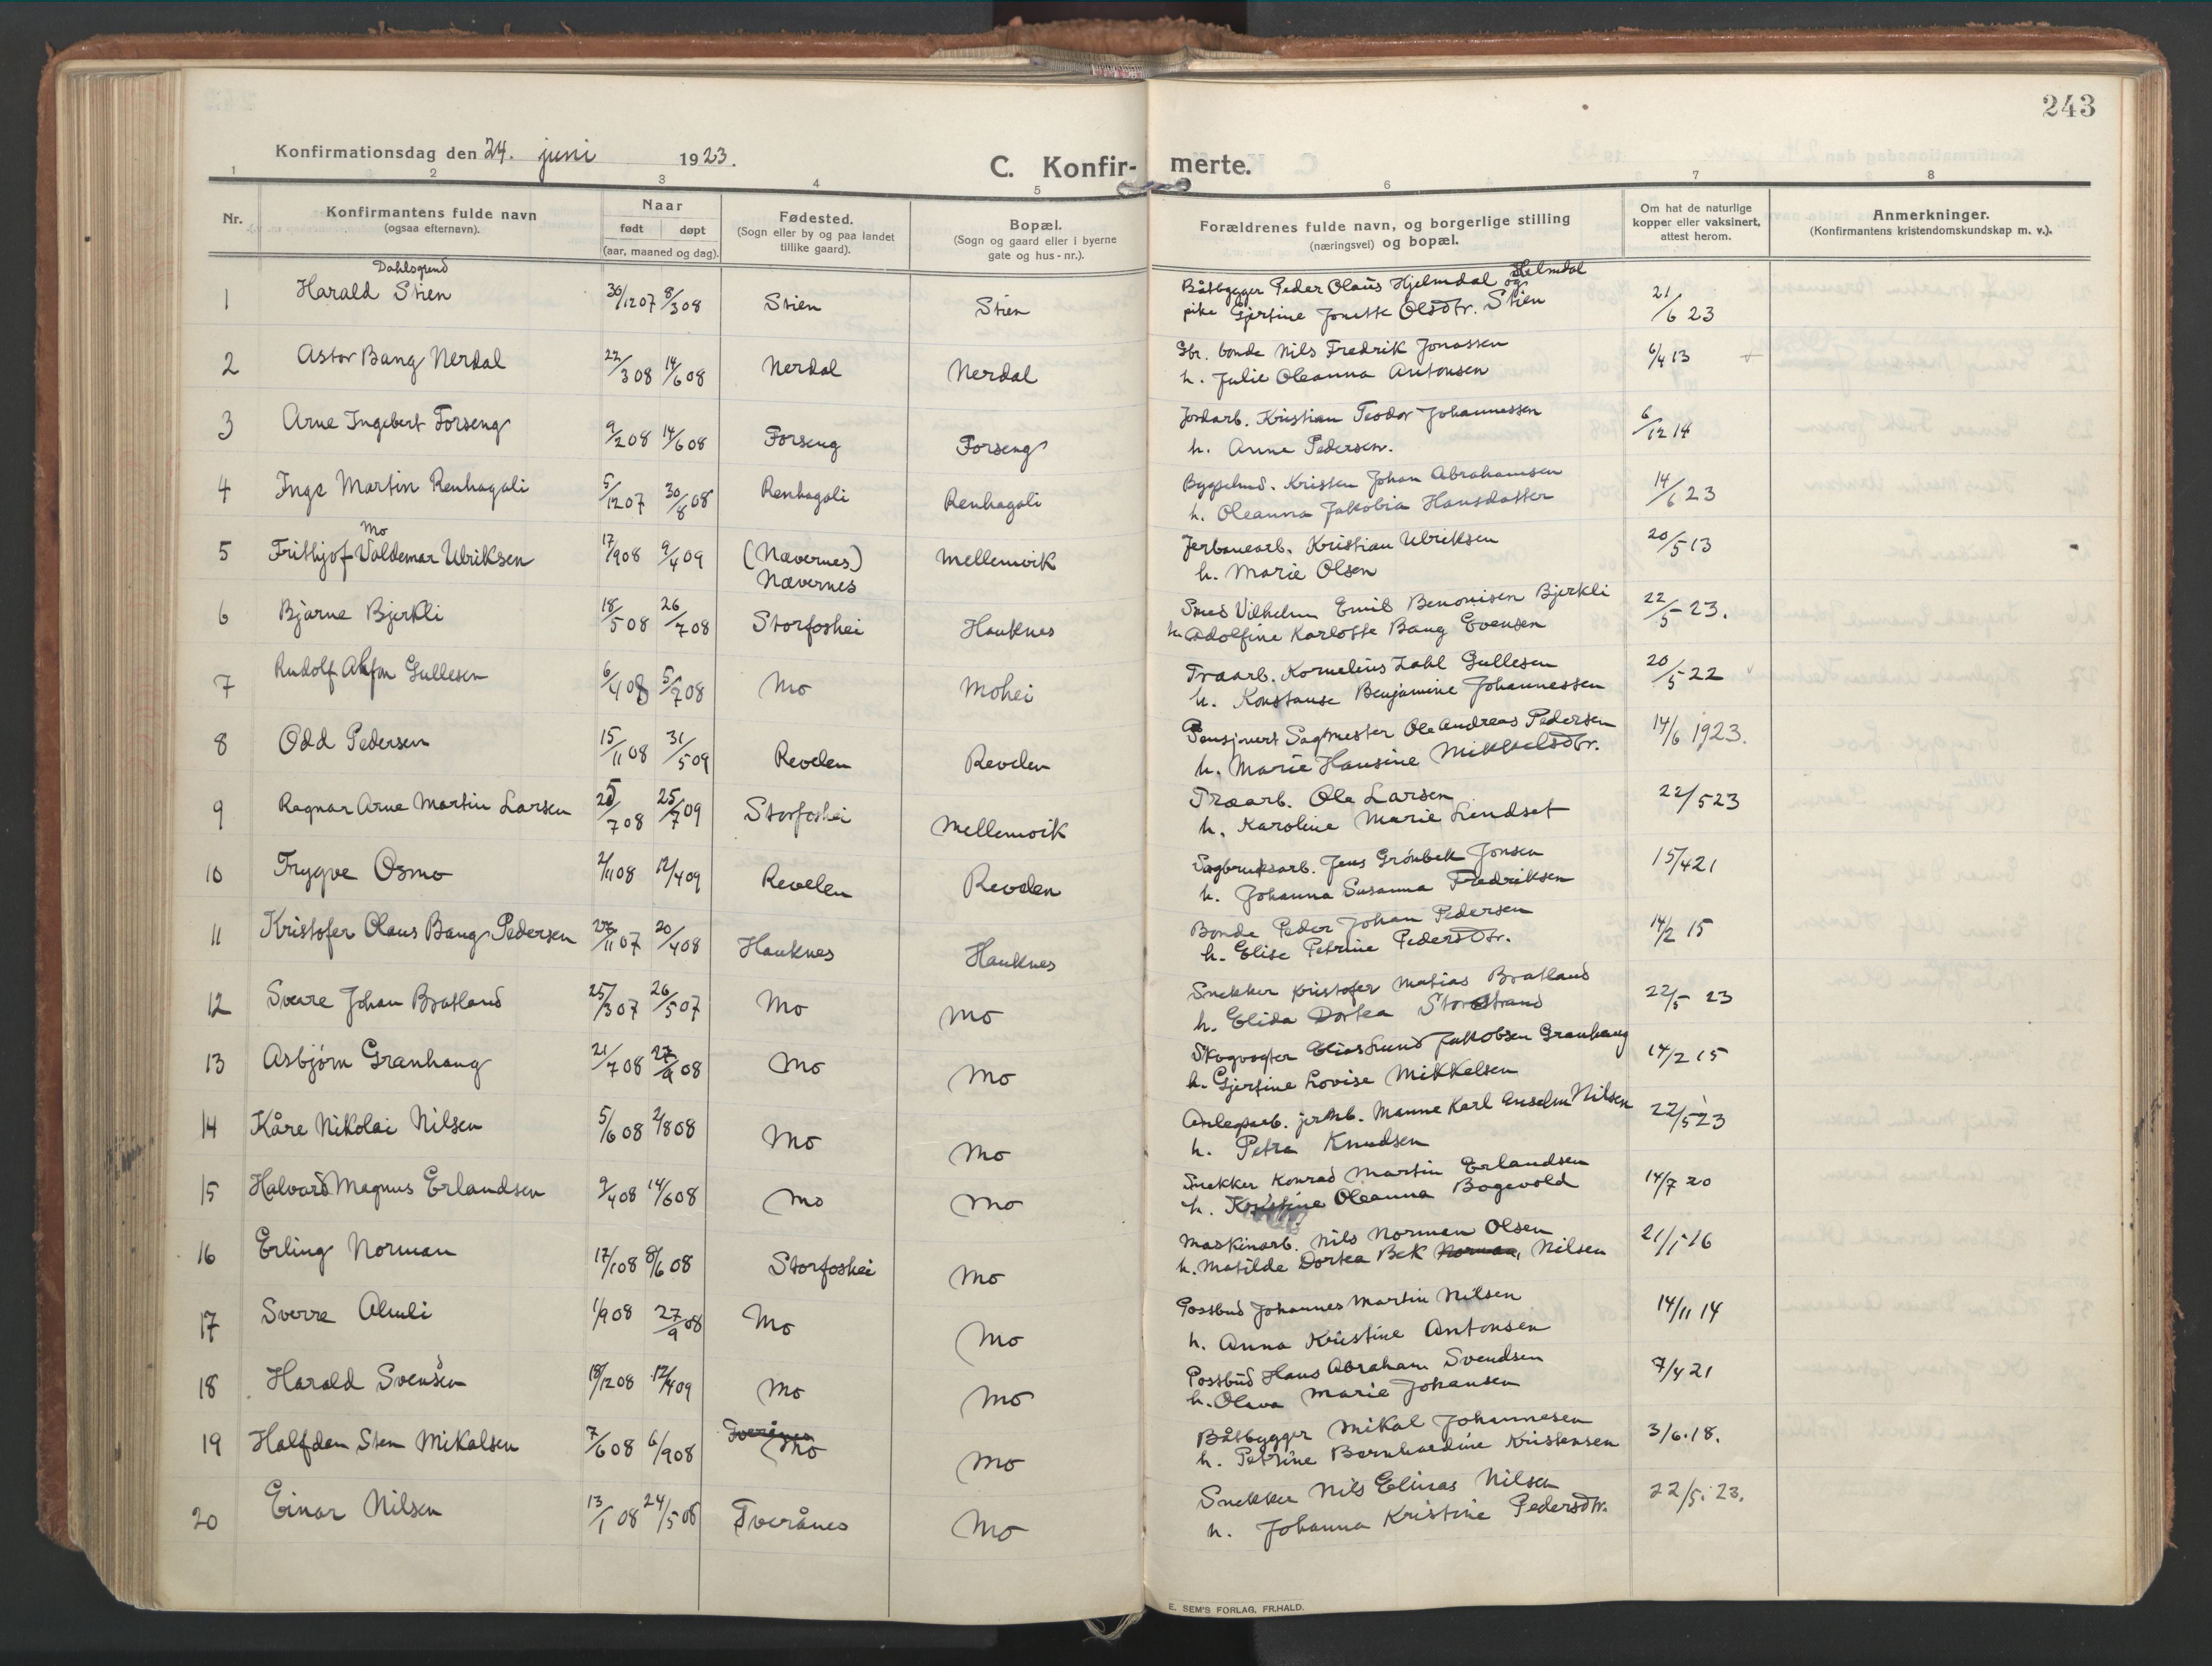 243
Konfirmationsdag den 24. juni 1923.
C. Konfir- merte.
1 2 3 4 5 6 7 8
Nr.
Konfirmantens fulde navn
(ogsaa efternavn).
Naar
født døpt
(aar, maaned og dag).
Fødested.
(Sogn eller by og paa landet
tillike gaard).
Bopæl.
(Sogn og gaard eller i byerne
gate og hus-nr.).
Forældrenes fulde navn, og borgerlige stilling
(næringsvei) og bopæl.
Om hat de naturlige
kopper eller vaksinert,
attest herom.
Anmerkninger.
(Konfirmantens kristendomskundskap m. v.).
Dahlsgrend
1 Harald Stien 30/12 07 8/3 08 Stien Stien Båtbygger Peder Olaus Hjelmdal og Helmdal
pike Gjertine Jonette Olsdtr. Stien 21/6 23
2 Astor Bang Nerdal 22/3 08 14/6 08 Nerdal Nerdal Gbr. bonde Nils Fredrik Jonassen 6/4 13
h. Julie Oleanna Antonsen
3 Arne Ingebert Forseng 9/2 08 14/6 08 Forseng Forseng Jordarb. Kristian Teodor Johannessen 6/12 14
h. Anna Pedersen.
4 Inge Martin Renhagali 5/12 07 30/8 08 Renhagali Renhagali Bygselmd. Kristen Johan Abrahamsen 14/6 23
h. Oleanna Jakobia Hansdatter
Mo
5 Frithjof Valdemar Ulriksen 17/9 08 9/4 09 (Nævernes) Mellemvik Jerbanearb. Kristian Ulriksen 20/5 13
Nævernes h. Marie Olsen
6 Bjarne Bjerkli 18/5 08 26/7 08 Storfoshei Hauknes Smed Vilhelm Emil Benonisen Bjerkli 22/5 - 23.
h. Adolfine Karlotte Bang Evensen
7 Rudolf Alfon Gullesen 6/4 08 5/7 08 Mo Mohei Træarb. Kornelius Zahl Gullesen 20/5 22
h. Konstanse Benjamine Johannessen
8 Odd Pedersen 15/11 08 31/5 09 Revelen Revelen Pensjonert Sagmester Ole Andreas Pedersen 14/6 1923.
h. Marie Hansine Mikkelsdtr.
9 Ragnar Arne Martin Larsen 25/7 08 25/7 09 Storfoshei Mellemvik Træarb. Ole Larsen 22/5 23
h. Karoline Marie Lendset
10 Trygve Osmo 2/11 08 12/4 09 Revelen Revelen Sagbruksarb. Jens Grönbek Jonsen 15/4 21
h. Johanna Susanna Fredriksen
11 Kristofer Olaus Bang Pedersen 27/11 07 20/4 08 Hauknes Hauknes Bonde Peder Johan Pedersen 14/2 15
h. Elise Petrine Pedersdtr.
12 Sverre Johan Bratland 25/3 07 26/5 07 Mo Mo Snekker Kristofer Matias Bratland 22/5 - 23
h. Elida Dortea Storstrand
13 Asbjörn Granhaug 21/7 08 27/9 08 Mo Mo Skogvogter Elias Lund Jakobsen Granhaug 14/2 15
h. Gjertine Lovise Mikkelsen
14 Kåre Nikolai Nilsen 5/6 08 2/8 08 Mo Mo Anlegsarb. jernb. Manne Karl Anselm Nilsen 22/5 23
h. Petra Knudsen
15 Halvard Magnus Erlandsen 9/4 08 14/6 08 Mo Mo Snekker Konrad Martin Erlandsen 14/7 20
h. Kristine Oleanna Bogevold
16 Erling Norman 17/1 08 8/6 08 Storfoshei Mo Maskinarb. Nils Norman Olsen 21/1 - 16
h. Matilde Dortea Bek Norman, Nilsen
17 Sverre Almli 1/9 08 27/9 08 Mo Mo Postbud Johannes Martin Nilsen 14/11 14
h. Anna Kristine Antonsen
18 Harald Svensen 18/12 08 12/4 09 Mo Mo Postbud Hans Abraham Svendsen 7/4 21
h. Olava Marie Johansen
19 Halfdan Sten Mikalsen 7/6 08 6/9 08 Tverånes Mo Mo Båtbygger Mikal Johannesen 3/6.18.
h. Petrine Bernhardine Kristensen
20 Einar Nilsen 13/1 08 24/5 08 Tverånes Mo Snekker Nils Elinas Nilsen 22/5. 23.
h. Johanna Kristine Pedersdtr.
E. SEM'S FORLAG, FR.HALD.